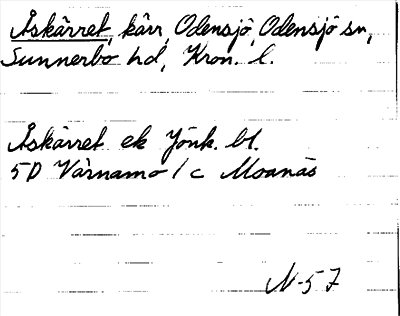 Åskärret, kärr, Odensjö, Odensjö sn,
Sunnerbo hd, Kron. l.
Åskärret ek Jönk. bl.
5D Värnamo 1 c Moanäs
N-57